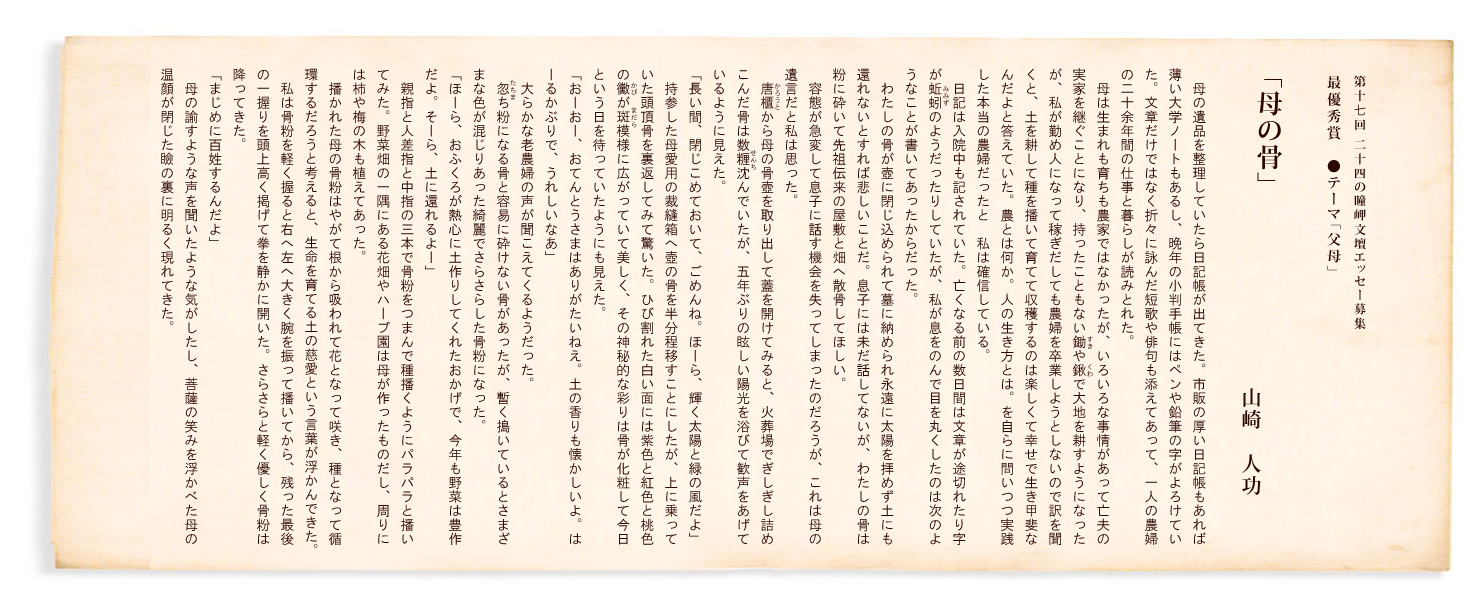 第十七回 二十四の瞳岬文壇エッセー募集
最優秀賞 ●テーマ「父母」
「母の骨」
山崎 人功
母の遺品を整理していたら日記帳が出てきた。市販の厚い日記帳もあれば
薄い大学ノートもあるし、晩年の小判手帳にはペンや鉛筆の字がよろけてい
た。文章だけではなく折々に詠んだ短歌や俳句も添えてあって、一人の農婦
の二十余年間の仕事と暮らしが読みとれた。
母は生まれも育ちも農家ではなかったが、いろいろな事情があって亡夫の
実家を継ぐことになり、持ったこともない鋤すきや鍬くわで大地を耕すようになった
が、私が勤め人になって稼ぎだしても農婦を卒業しようとしないので訳を聞
くと、土を耕して種を播いて育てて収穫するのは楽しくて幸せで生き甲斐な
んだよと答えていた。農とは何か。人の生き方とは。を自らに問いつつ実践
した本当の農婦だったと 私は確信している。
日記は入院中も記されていた。亡くなる前の数日間は文章が途切れたり字
が蚯蚓みみずのようだったりしていたが、私が息をのんで目を丸くしたのは次のよ
うなことが書いてあったからだった。
わたしの骨が壺に閉じ込められて墓に納められ永遠に太陽を拝めず土にも
還れないとすれば悲しいことだ。息子には未だ話してないが、わたしの骨は
粉に砕いて先祖伝来の屋敷と畑へ散骨してほしい。
容態が急変して息子に話す機会を失ってしまったのだろうが、これは母の
遺言だと私は思った。
唐櫃かろうとから母の骨壺を取り出して蓋を開けてみると、火葬場でぎしぎし詰め
こんだ骨は数糎せんち沈んでいたが、五年ぶりの眩しい陽光を浴びて歓声をあげて
いるように見えた。
「長い間、閉じこめておいて、ごめんね。ほーら、輝く太陽と緑の風だよ」
持参した母愛用の裁縫箱へ壺の骨を半分程移すことにしたが、上に乗って
いた頭頂骨を裏返してみて驚いた。ひび割れた白い面には紫色と紅色と桃色
の黴かびが斑まだら模様に広がっていて美しく、その神秘的な彩りは骨が化粧して今日
という日を待っていたようにも見えた。
「おーおー、おてんとうさまはありがたいねえ。土の香りも懐かしいよ。は
ーるかぶりで、うれしいなあ」
大らかな老農婦の声が聞こえてくるようだった。
忽たちまち粉になる骨と容易に砕けない骨があったが、暫く搗いているとさまざ
まな色が混じりあった綺麗でさらさらした骨粉になった。
「ほーら、おふくろが熱心に土作りしてくれたおかげで、今年も野菜は豊作
だよ。そーら、土に還れるよー」
親指と人差指と中指の三本で骨粉をつまんで種播くようにパラパラと播い
てみた。野菜畑の一隅にある花畑やハーブ園は母が作ったものだし、周りに
は柿や梅の木も植えてあった。
播かれた母の骨粉はやがて根から吸われて花となって咲き、種となって循
環するだろうと考えると、生命を育てる土の慈愛という言葉が浮かんできた。
私は骨粉を軽く握ると右へ左へ大きく腕を振って播いてから、残った最後
の一握りを頭上高く掲げて拳を静かに開いた。さらさらと軽く優しく骨粉は
降ってきた。
「まじめに百姓するんだよ」
母の諭すような声を聞いたような気がしたし、菩薩の笑みを浮かべた母の
温顔が閉じた瞼の裏に明るく現れてきた。